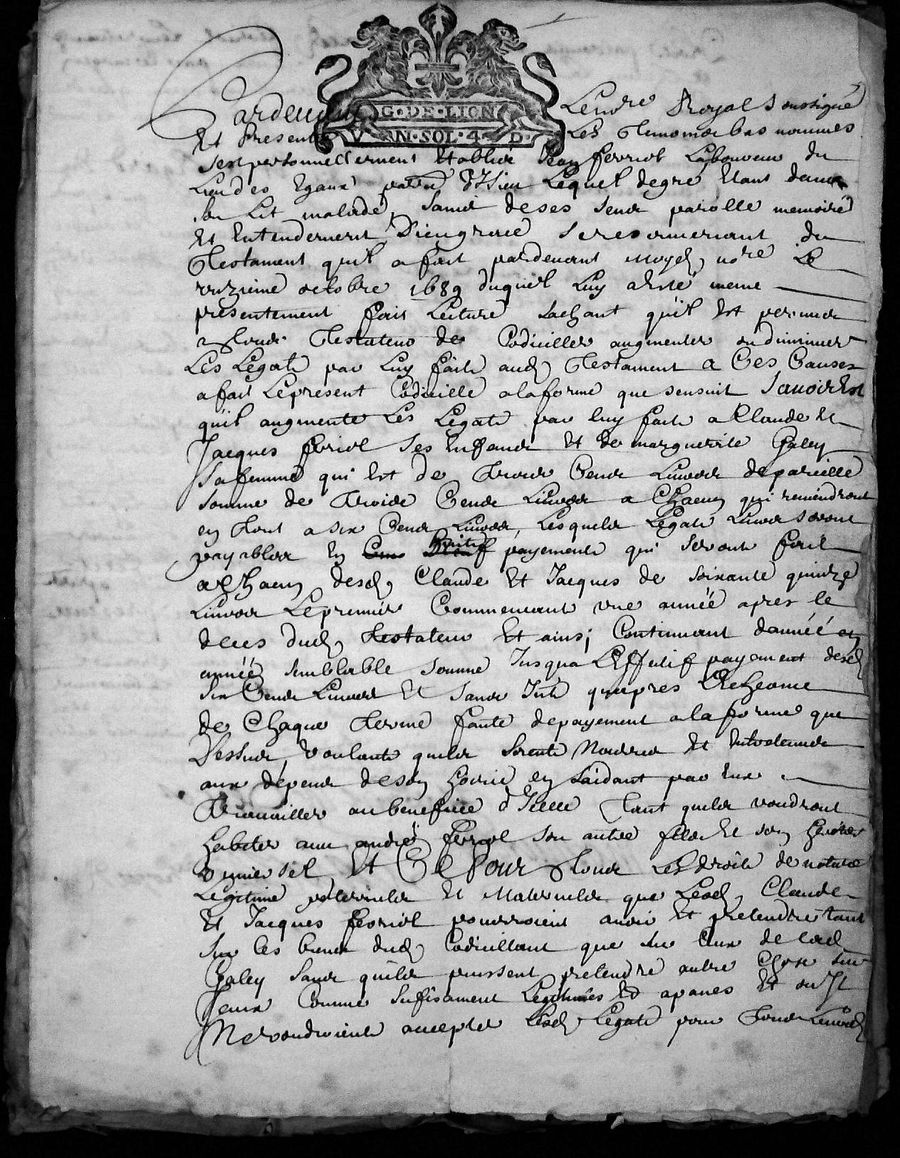 G·DE·LION
V N·SOL·4·D·
Pardevant Lenore Royal Soussigné
Et Present Les tesmoins bas nommes
Sest personnellement Establie Jean ferriol Laboureur du
Lieu des Egaux Lequel degre Etant dans
Son Lit malade, Sainct de ses sens parolle memoire
Et Entendement Dieugrace se ressouvenant du
Testament quil a fait pardevant Moyd nore Le
octobre 1689 duquel Luy a Esté meme
presentement fait Lecture Sachant quil Est permis
a tout Testateur de Codiciller augmenter ou diminuer
Les Legats par Luy faits aud Testament a Ces Causes
a fait Le present Codicille a la forme que sensuit Scavoir Est
quil augmente Les Legats par luy fait a Claude Et
Jacques feriol ses Enffans Et de marguerite Galey
Sa femme qui Est de Trois Cens Livres de pareille
somme de Trois Cens Livres a Chacun qui reviendront
en tout a six Cens Livres, Lesquels Legats Leurs seront
payables En huitt payements qui seront fait
a Chacun desd Claude Et Jacques de soixante quinze
Livres Le premier Commencant une année apres le
deces dud Testateur Et ainsi Continuant dannée en
année semblable somme Jusqua Leffectif payement desd
six Cens Livres Et sans Jnts quapres Lecheance
de Chaque terme faute de payement a la forme que
Dessus, voulant quils soient Nourris Et Entretenus
aux depens de son hoirie en Laidant par Eux
a travailler au benefice dIcelle Tant quils voudront
habiter avec andré ferriol son autre fils Et son heritier
universel, Et Ce Pour tous Les droits de nature
Legitime paternels Et Maternels que Lesd Claude
Et Jacques ferriol pourroient avoir Et pretendre tant
sur les biens dud Codicillant que sur Ceux de lad
Galey sans quils puissent pretendre autre Chose sur
Jceux Comme suffisament Legitimés Et apanés Et ou Jls
Ne voudroient accepter Lesd Legats pour